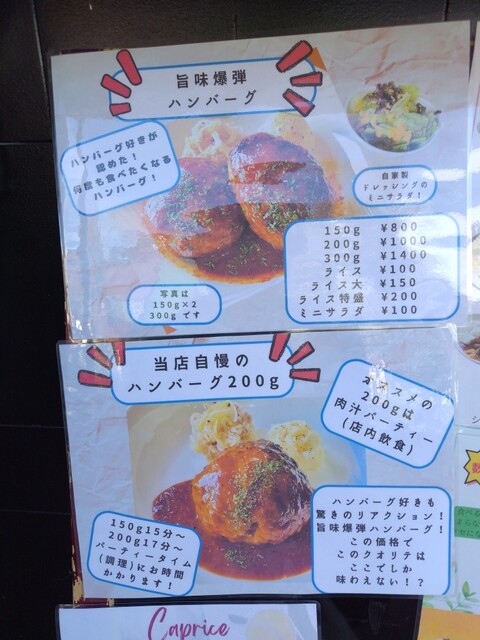 旨味爆弾
ハンバーグ
ハンバーグ好きが
認めた！
何度も食べたくなる
ハンバーグ！
自家製
ドレッシングの
ミニサラダ！
150g ¥800
200g ¥1000
300g ¥1400
ライス ¥100
ライス大 ¥150
ライス特盛 ¥200
ミニサラダ ¥100
写真は
150g×2
300g です
当店自慢の
ハンバーグ200g
オススメの
200gは
肉汁パーティー
(店内飲食)
ハンバーグ好きも
驚きのリアクション！
旨味爆弾ハンバーグ！
この価格で
このクオリテは
ここでしか
味わえない！？
150g15分～
200g17分～
パーティータイム
(調理)にお時間
かかります！
Caprice